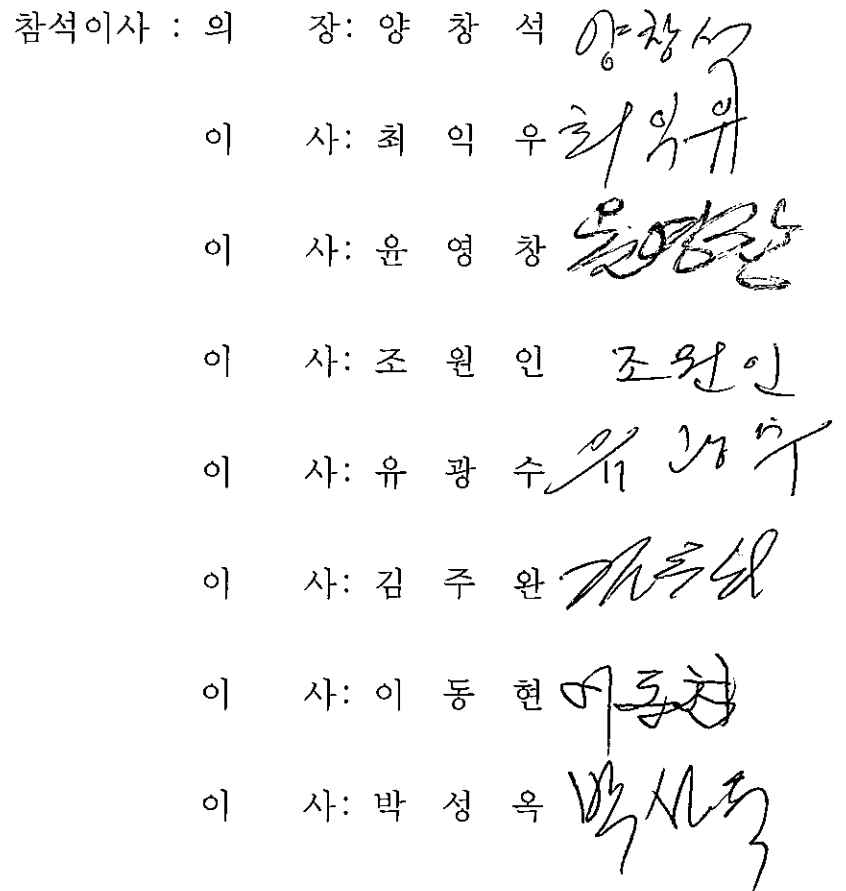 참석이사 : 의 장: 양 창 석 양창석
이 사: 최 익 우 최익우
이 사: 윤 영 창 윤영창
이 사: 조 원 인 조원인
이 사: 유 광 수 유광수
이 사: 김 주 완 김주완
이 사: 이 동 현 이동현
이 사: 박 성 옥 박성옥